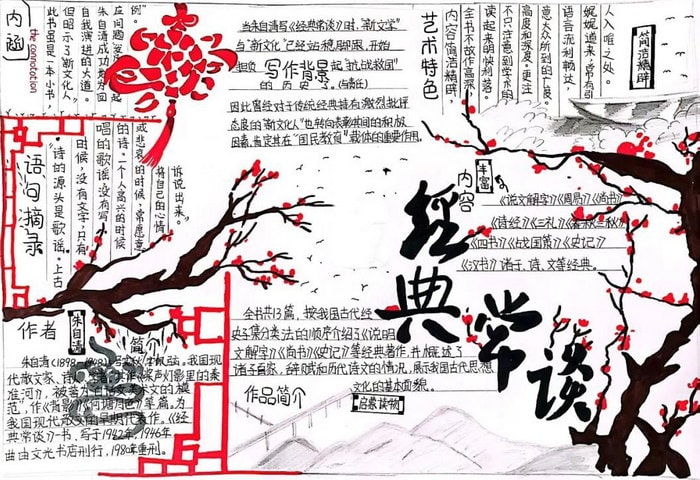 内涵
the connotation
例。
自我演进的大道。
但昭示了新文化人
此书虽是一本小书，
当朱自清写《经典常谈》时，“新文学”
与“新文化”已经站稳脚跟，开始
写作背景
起“抗战救国”
的历史
因此曾经对于传统经典持有激烈批评
态度的“新文化人”也转向表彰其间的积极
因素，肯定其在“国民教育”载体的重要作用。
艺术特色
内容简洁精辟，
全书不故作高深，
读起来明快利落。
不只注意到学术的
高度和深度，更注
意大众所到的广度。
语言流利畅达，
娓娓道来，常有引
人入咀之处。
简洁精辟
语句摘录
“诗的源头是歌谣。上古
时候，没有文字，只有
唱的歌谣，没有写
的诗。一个人高兴的时候
或悲哀的时候，常愿意
将自己的心情
诉说出来。”
内容
丰富
《说文解字》《周易》《尚书》
《诗经》《三礼》《春秋三传》
《四书》《战国策》《史记》
《汉书》诸子、诗、文等经典。
经典常谈
作者
朱自清
简介
朱自清(1898
我国现
代散文家、诗
桨声灯影里的秦
淮河》，被誉为
的模
范，作《背影》《荷塘月色》等篇，为
我国现代散文的早期代表作。《经
典常谈》一书，写于1942年，1946年
曲由文光书店刊行，198年重刊。
全书共13篇，按我国古代经
史子集分类法的顺序介绍了《说明
文解字》《尚书》《史记》等经典著作，并概述了
诸子百家、辞赋和历代诗文的情况，展示我国古代思想
文化的基本面貌。
作品简介
启蒙读物